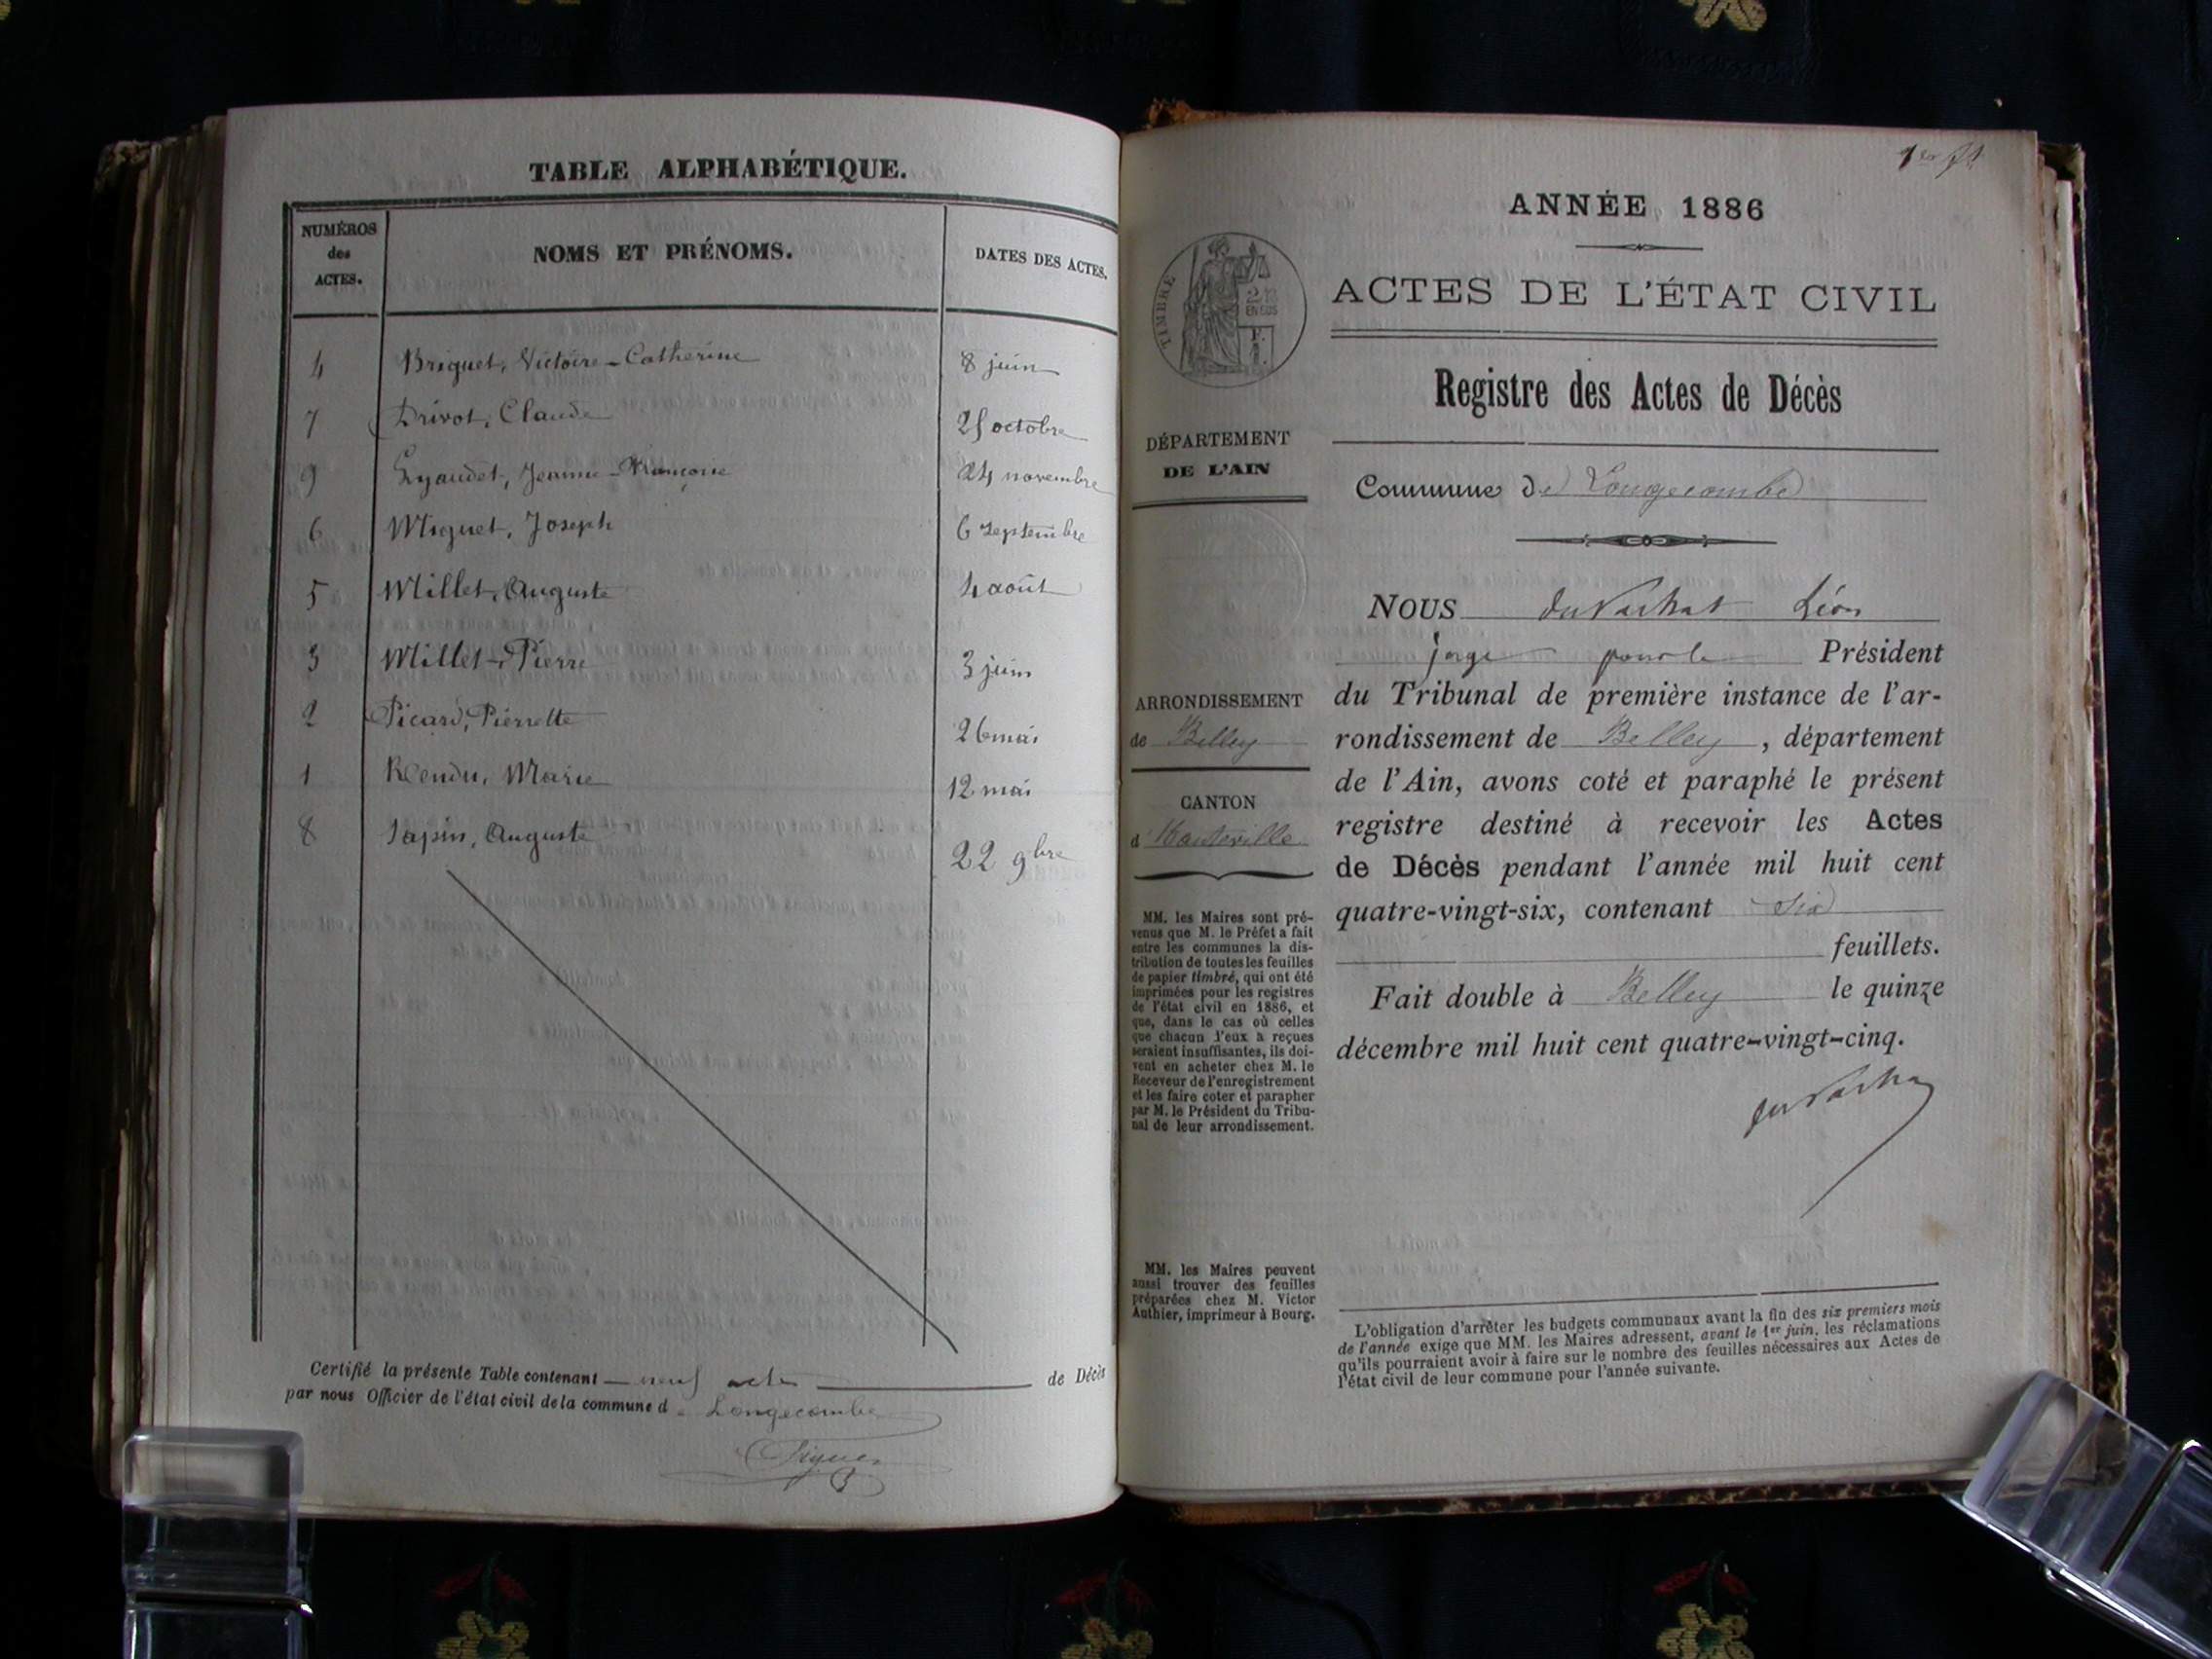 TABLE ALPHABÉTIQUE.
NUMÉROS des ACTES. NOMS ET PRÉNOMS. DATES DES ACTES.
4 Briguet, Victoire-Catherine 8 juin
7 Drivot, Claude octobre
9 Lyaudet, Jeanne-Françoise 24 novembre
6 Miguet, Joseph 6 septembre
5 Millet, Auguste 4 août
3 Millet, Pierre 3 juin
2 Picard, Pierrette 26 mai
1 Rendu, Marie 12 mai
8 Sapin, Auguste 22 9bre
Certifié la présente Table contenant neuf actes de Décès
par nous Officier de l'état civil de la commune de Longecombe
1er
ANNÉE 1886
TIMBRE
2/10
EN SUS
ACTES DE L'ÉTAT CIVIL
Registre des Actes de Décès
DÉPARTEMENT
DE L'AIN
Commune de Longecombe
NOUS du Vachat Léon
juge pour le Président
du Tribunal de première instance de l'ar-
rondissement de Belley, département
de l'Ain, avons coté et paraphé le présent
registre destiné à recevoir les Actes
de Décès pendant l'année mil huit cent
quatre-vingt-six, contenant six
feuillets.
Fait double à Belley le quinze
décembre mil huit cent quatre-vingt-cinq.
du Vachat
ARRONDISSEMENT
de Belley
CANTON
d'Hauteville
MM. les Maires sont pré-
venus que M. le Préfet a fait
entre les communes la dis-
tribution de toutes les feuilles
de papier timbré, qui ont été
imprimées pour les registres
de l'état civil en 1886, et
que, dans le cas où celles
que chacun d'eux a reçues
seraient insuffisantes, ils doi-
vent en acheter chez M. le
Receveur de l'enregistrement
et les faire coter et parapher
par M. le Président du Tribu-
nal de leur arrondissement.
MM. les Maires peuvent
aussi trouver des feuilles
préparées chez M. Victor
Authier, imprimeur à Bourg.
L'obligation d'arrêter les budgets communaux avant la fin des six premiers mois
de l'année exige que MM. les Maires adressent, avant le 1er juin, les réclamations
qu'ils pourraient avoir à faire sur le nombre des feuilles nécessaires aux Actes de
l'état civil de leur commune pour l'année suivante.